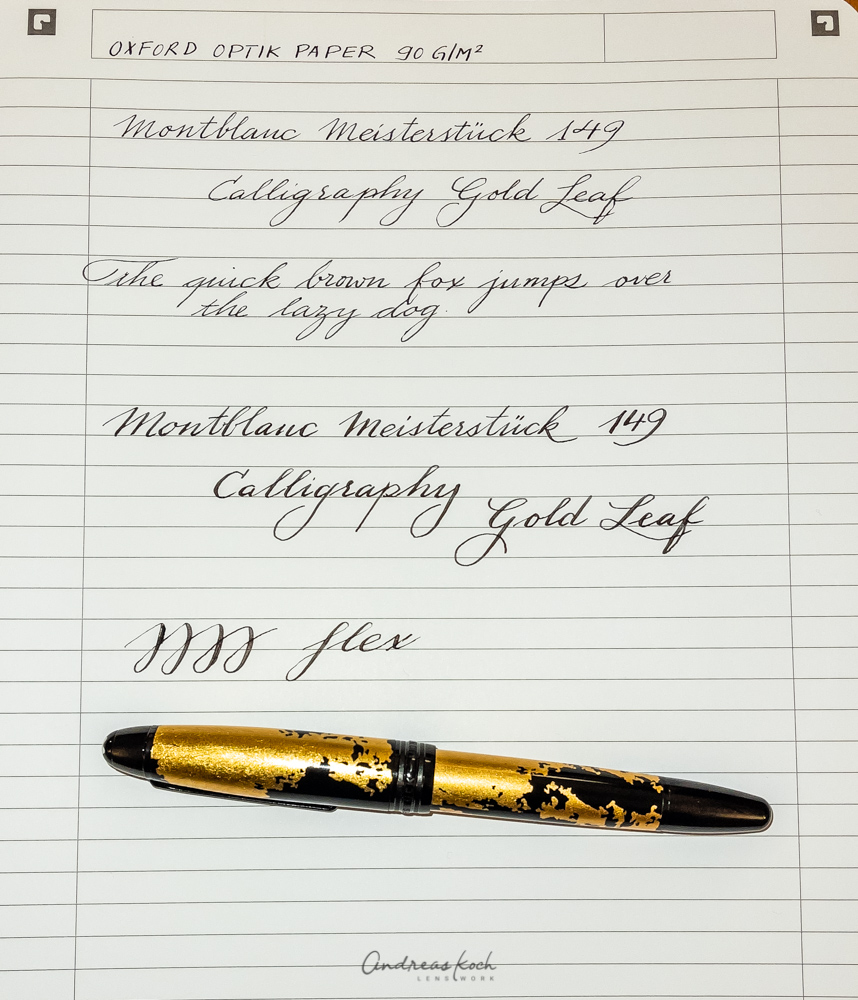 OXFORD OPTIK PAPER 90 G/M²
Montblanc Meisterstück 149
Calligraphy Gold Leaf
The quick brown fox jumps over
the lazy dog.
Montblanc Meisterstück 149
Calligraphy
Gold Leaf
flex
Andreas Koch
LENSWORK